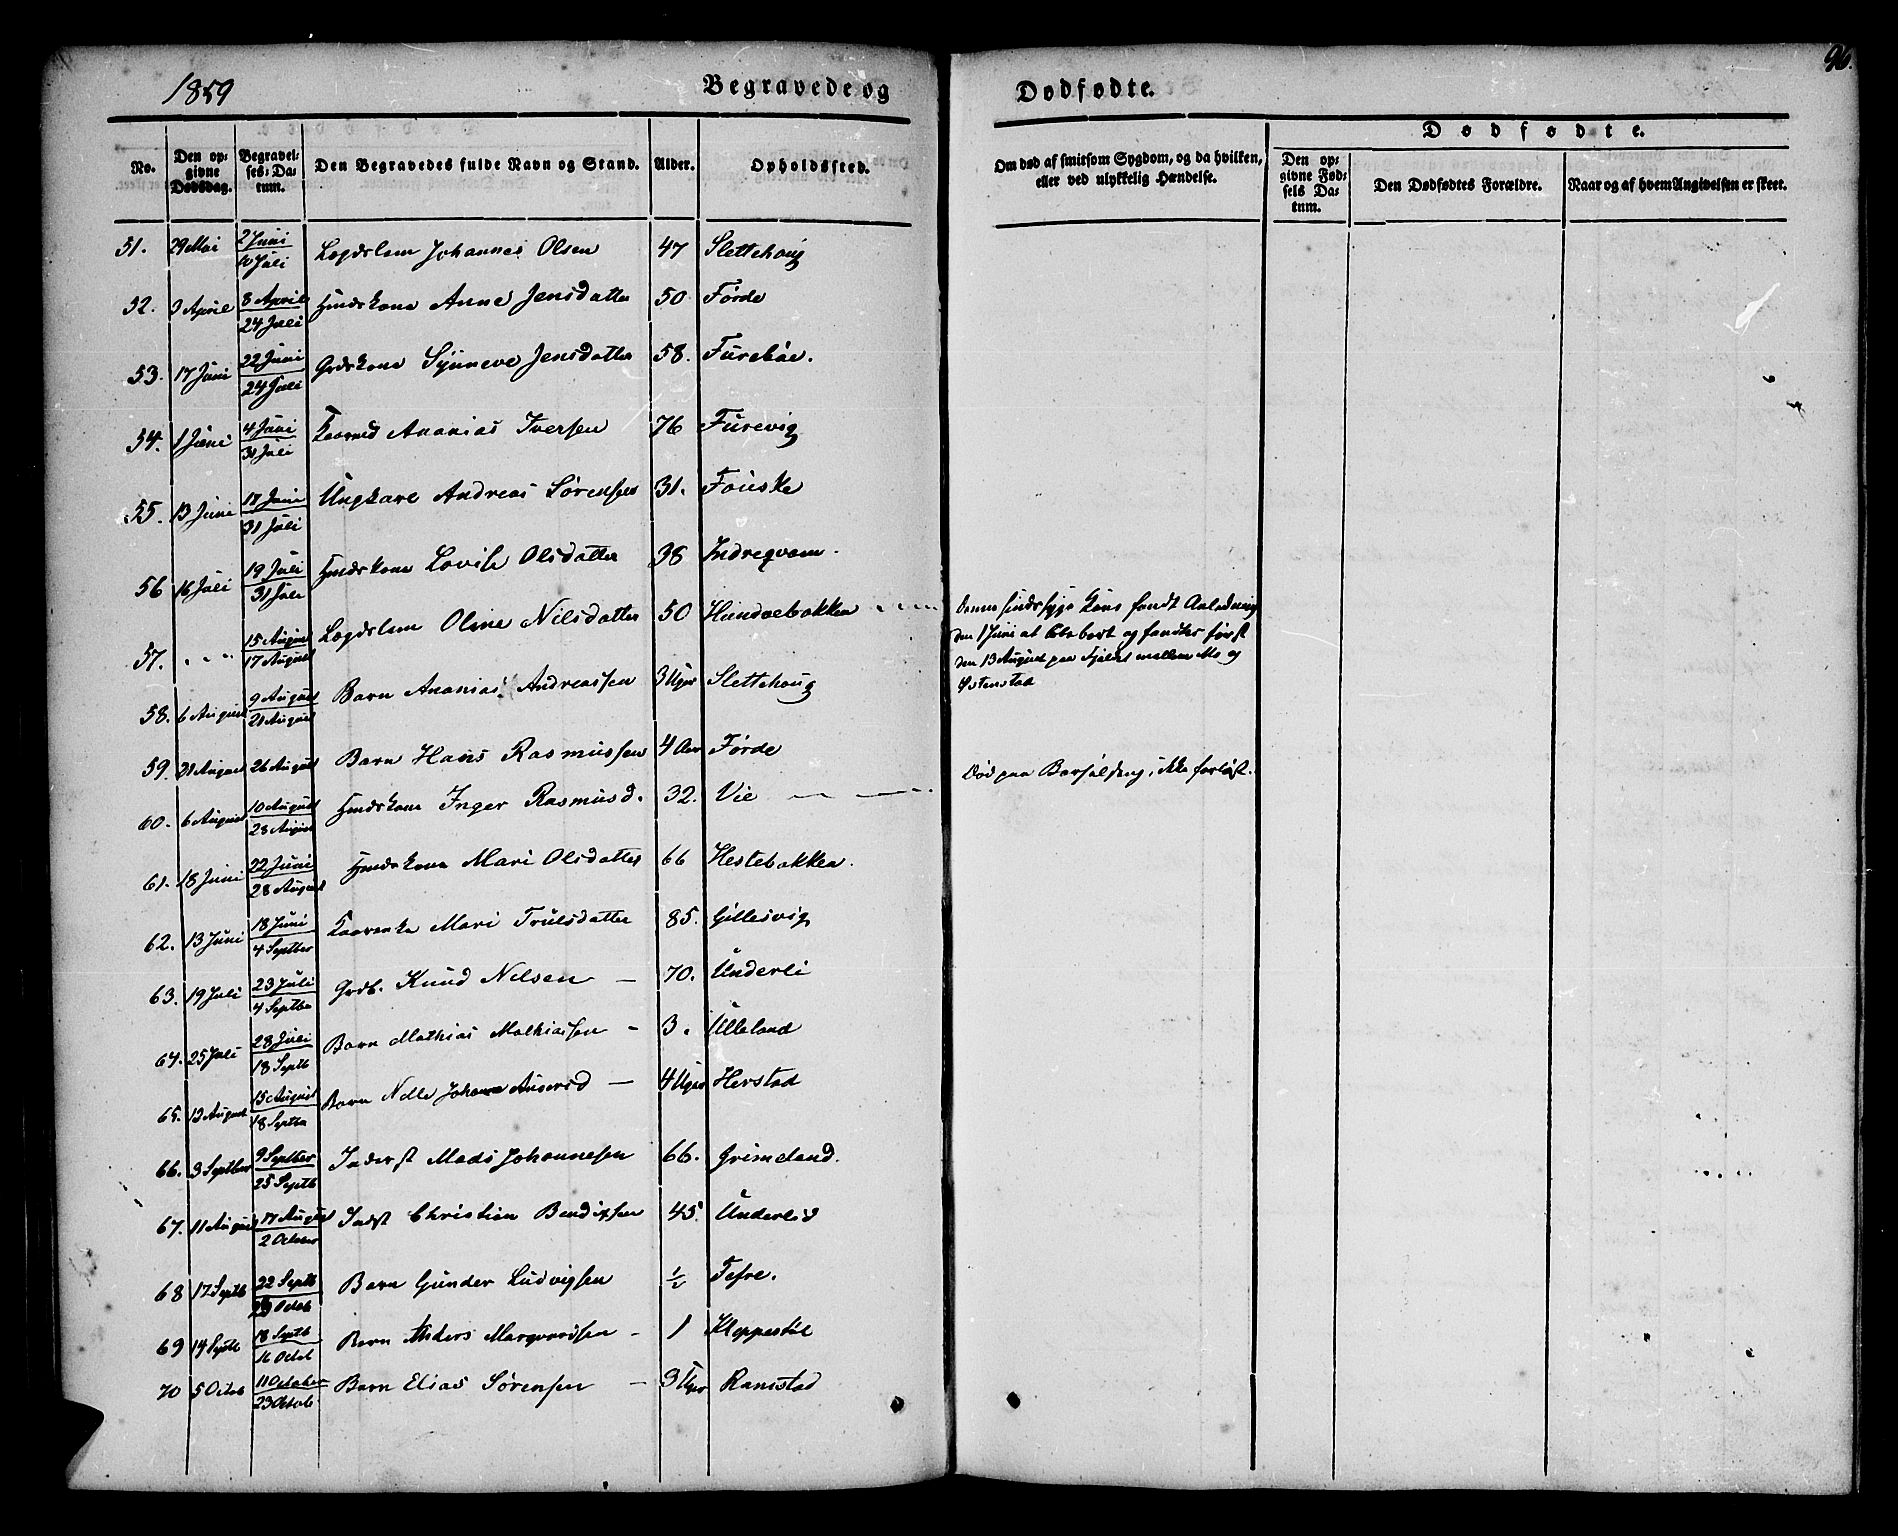 1859
Begravede og
Dødfødte.
96.
No.
Den opgivne Dødsdag.
Begravelses-Datum.
Den Begravedes fulde Navn og Stand.
Alder.
Opholdssted.
Om død af smitsom Sygdom, og da hvilken, eller ved ulykkelig Hændelse.
Dødfødte.
Den opgivne Fødsels Datum.
Den Dødfødtes Forældre.
Naar og af hvem Angivelsen er skeet.
51. 29 Mai 2 Juni / 10 Juli Lægdslem Johannes Olsen 47 Slettehoug
52. 3 April 8 April / 24 Juli Hmdskone Anne Jensdatter 50 Førde
53. 17 Juni 22 Juni / 24 Juli Grdskone Synneve Jensdatter 58. Furebøe.
54. 1 Juni 4 Juni / 31 Juli Kaarmd Ananias Iversen 76 Furevig
55. 13 Juni 17 Juni / 31 Juli Ungkare Andreas Sørensen 31. Fouske
56 16 Juli 19 Juli / 31 Juli Hmdskone Lovise Olsdatter 38 Indreqvam.
57. 15 August / 17 August Lægdslem Oline Nilsdatter 50 Hundvebakken
Denne sindssyge Kone fandt Anledning
den 1 Juni at løbe bort og fandtes først
den 13 August paa Fjeldet mellem Mo og
Østenstad
58. 6 August 9 August / 21 August Barn Ananias Andreassen 3 Uger Slettehoug
59. 21 August 26 August Barn Hans Rasmussen 4 Aar Førde
60. 6 August 10 August / 28 August Hmdskone Inger Rasmusd. 32. Vie
Død paa Barselseng, ikke forløst.
61. 18 Juni 22 Juni / 28 August Hmdskone Mari Olsdatter 66 Hestebakken.
62. 13 Juni 18 Juni / 4 Septber Kaarenke Mari Trulsdatter 85. Gillesvig
63. 19 Juli 23 Juli / 4 Septbr Grdb. Knud Nilsen — 70. Underli
64. 25 Juli 28 Juli / 18 Septb Barn Mathias Mathiassen - 3. Ulleland
65. 12 August 15 August / 18 Septbr Barn Nille Johanne Ansersd — 4 Uger Herstad
66. 3 Septber 9 Septber / 25 Septb Inderst Mads Johannesen 66. Grimeland.
67. 11 August 17 August / 2 October Indst Christian Bendixsen 45. Underlid
68 17 Septb 22 Septb / Octob Barn Gunder Ludvigsen ½ Tefre.
69 14 Septb 18 Septb / 16 Octob Barn Anders Marqvardsen - 1 Kleppestøl
70 5 Octob 11 October / 23 Octob Barn Elias Sørensen — 3 Uger Ramstad